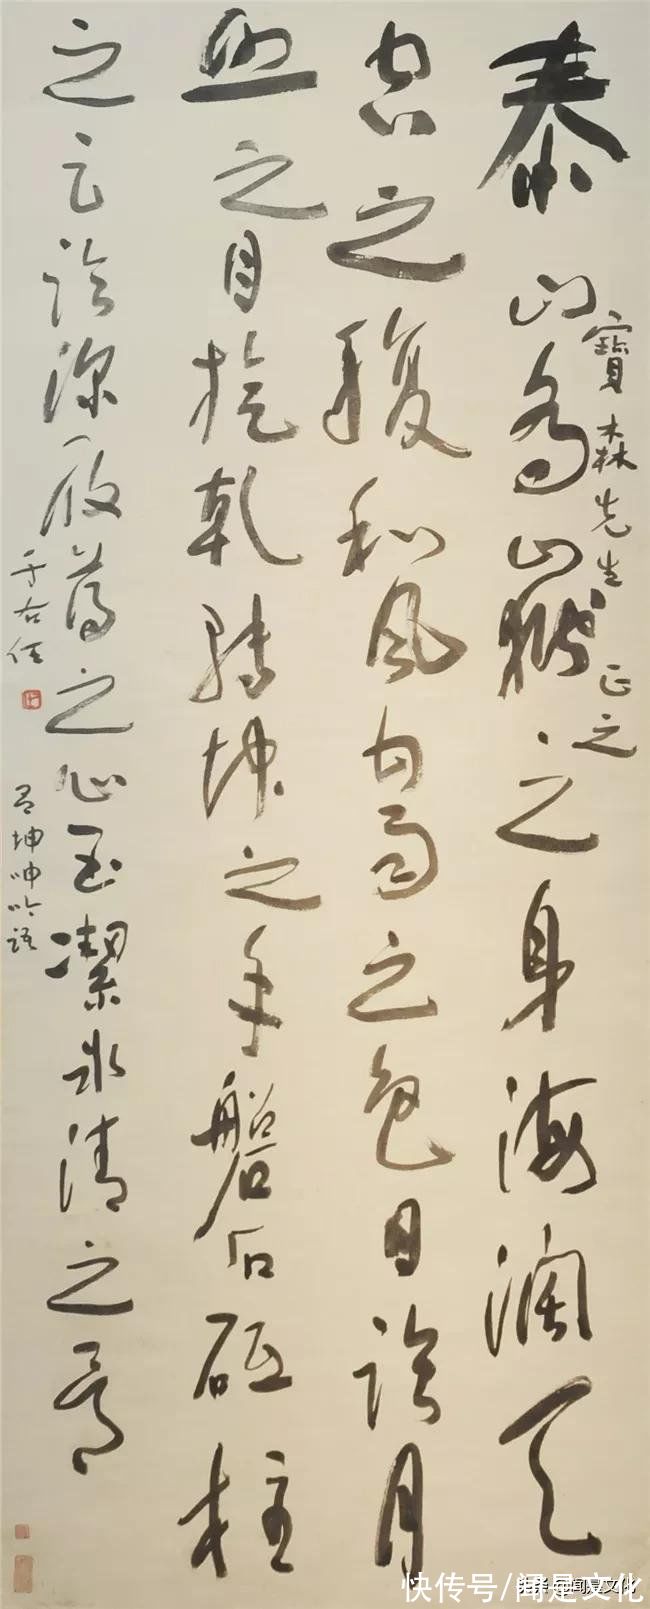 泰山喬嶽之身海濶天
寶森先生正之
空之腹和風甘雨之色日臨月
照之目旋乾轉坤之手磐石砥柱
之足臨深履薄之心玉潔冰清之骨
于右任
呂坤呻吟語
头条 @闻是文化
快传号/闻是文化